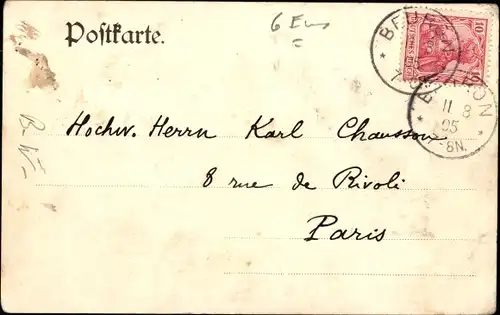 Postkarte.
6 Eur
BEURON
11 8
05
7-8N.
10
Hochw. Herrn Karl Chausson
8 rue de Rivoli
Paris